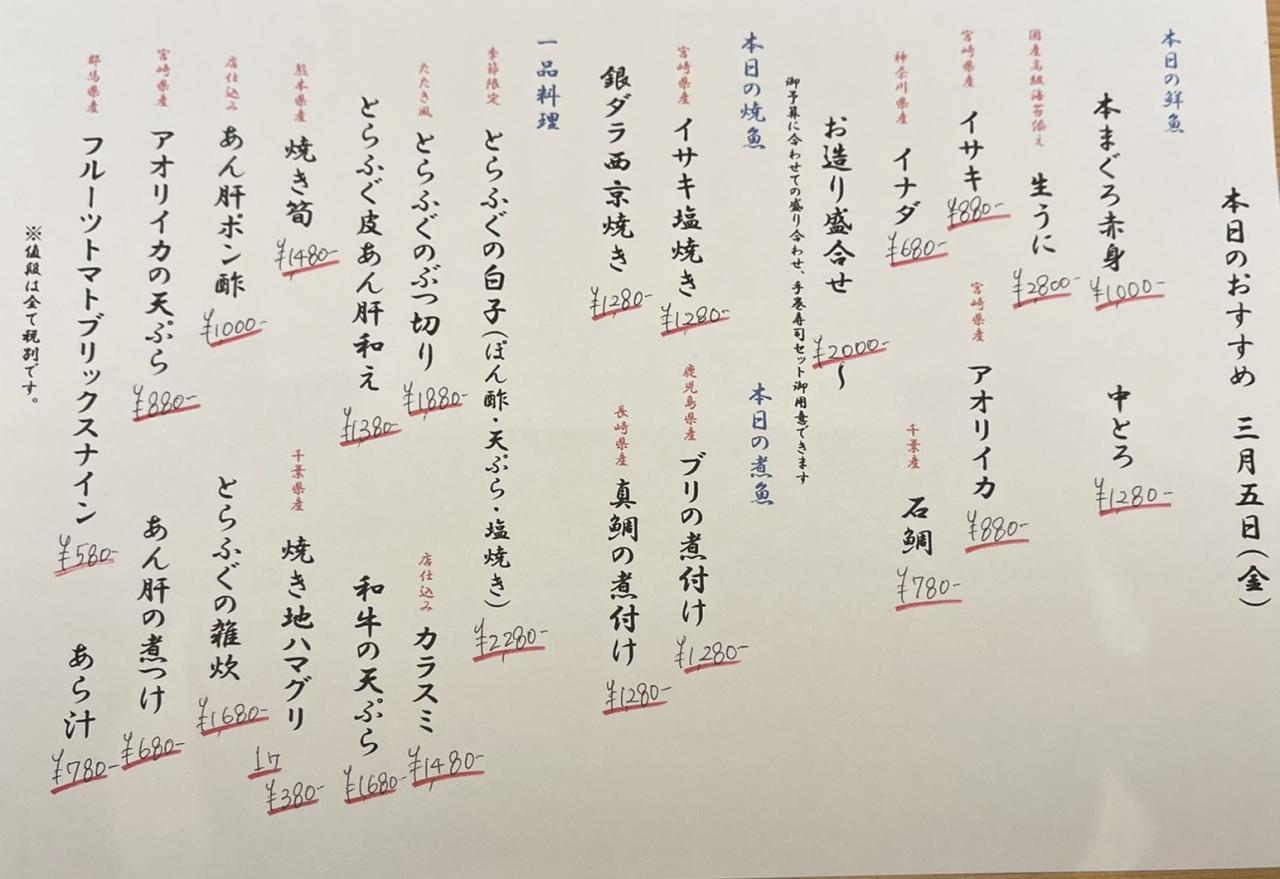 本日のおすすめ 三月五日(金)
本日の鮮魚
本まぐろ赤身 ¥1,000-
中とろ ¥1,280-
国産高級海苔添え 生うに ¥2,800-
宮崎県産 イサキ ¥880-
宮崎県産 アオリイカ ¥880-
神奈川県産 イナダ ¥680-
千葉産 石鯛 ¥780-
お造り盛合せ ¥2,000-～
御予算に合わせての盛り合わせ、手巻寿司セット御用意できます
本日の焼魚
宮崎県産 イサキ塩焼き ¥1,280-
銀ダラ西京焼き ¥1,280-
本日の煮魚
鹿児島県産 ブリの煮付け ¥1,280-
長崎県産 真鯛の煮付け ¥1,280-
一品料理
季節限定 とらふぐの白子(ぽん酢・天ぷら・塩焼き) ¥2,280-
たたき風 とらふぐのぶつ切り ¥1,880-
店仕込み カラスミ ¥1,480-
とらふぐ皮あん肝和え ¥1,380-
和牛の天ぷら ¥1,680-
熊本県産 焼き筍 ¥1,480-
千葉県産 焼き地ハマグリ 1ヶ ¥380-
店仕込み あん肝ポン酢 ¥1,000-
とらふぐの雑炊 ¥1,680-
宮崎県産 アオリイカの天ぷら ¥880-
あん肝の煮つけ ¥680-
群馬県産 フルーツトマトブリックスナイン ¥580-
あら汁 ¥780-
※値段は全て税別です。